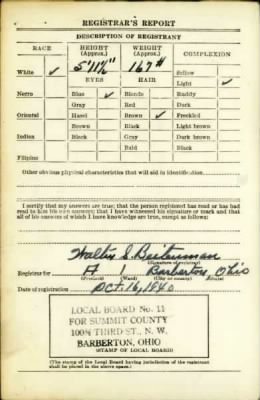 REGISTRAR'S REPORT
DESCRIPTION OF REGISTRANT
RACE HEIGHT (Approx.) WEIGHT (Approx.) COMPLEXION
White ✓ 5'11½" 167# Sallow
EYES HAIR Light ✓
Negro Blue ✓ Blonde Ruddy
Gray Red Dark
Oriental Hazel Brown ✓ Freckled
Brown Black Light brown
Indian Black Gray Dark brown
Bald Black
Filipino
Other obvious physical characteristics that will aid in identification
I certify that my answers are true; that the person registered has read or has had
read to him his own answers; that I have witnessed his signature or mark and that
all of his answers of which I have knowledge are true, except as follows:
Walter S.
(Signature of registrar)
Registrar for A 1 Barberton, Ohio
(Precinct) (Ward) (City or County) (State)
Date of registration Oct. 16, 1940
LOCAL BOARD No. 11
FOR SUMMIT COUNTY
100½ THIRD ST., N. W.
BARBERTON, OHIO
(STAMP OF LOCAL BOARD)
(The stamp of the Local Board having jurisdiction of the registrant
shall be placed in the above space.)